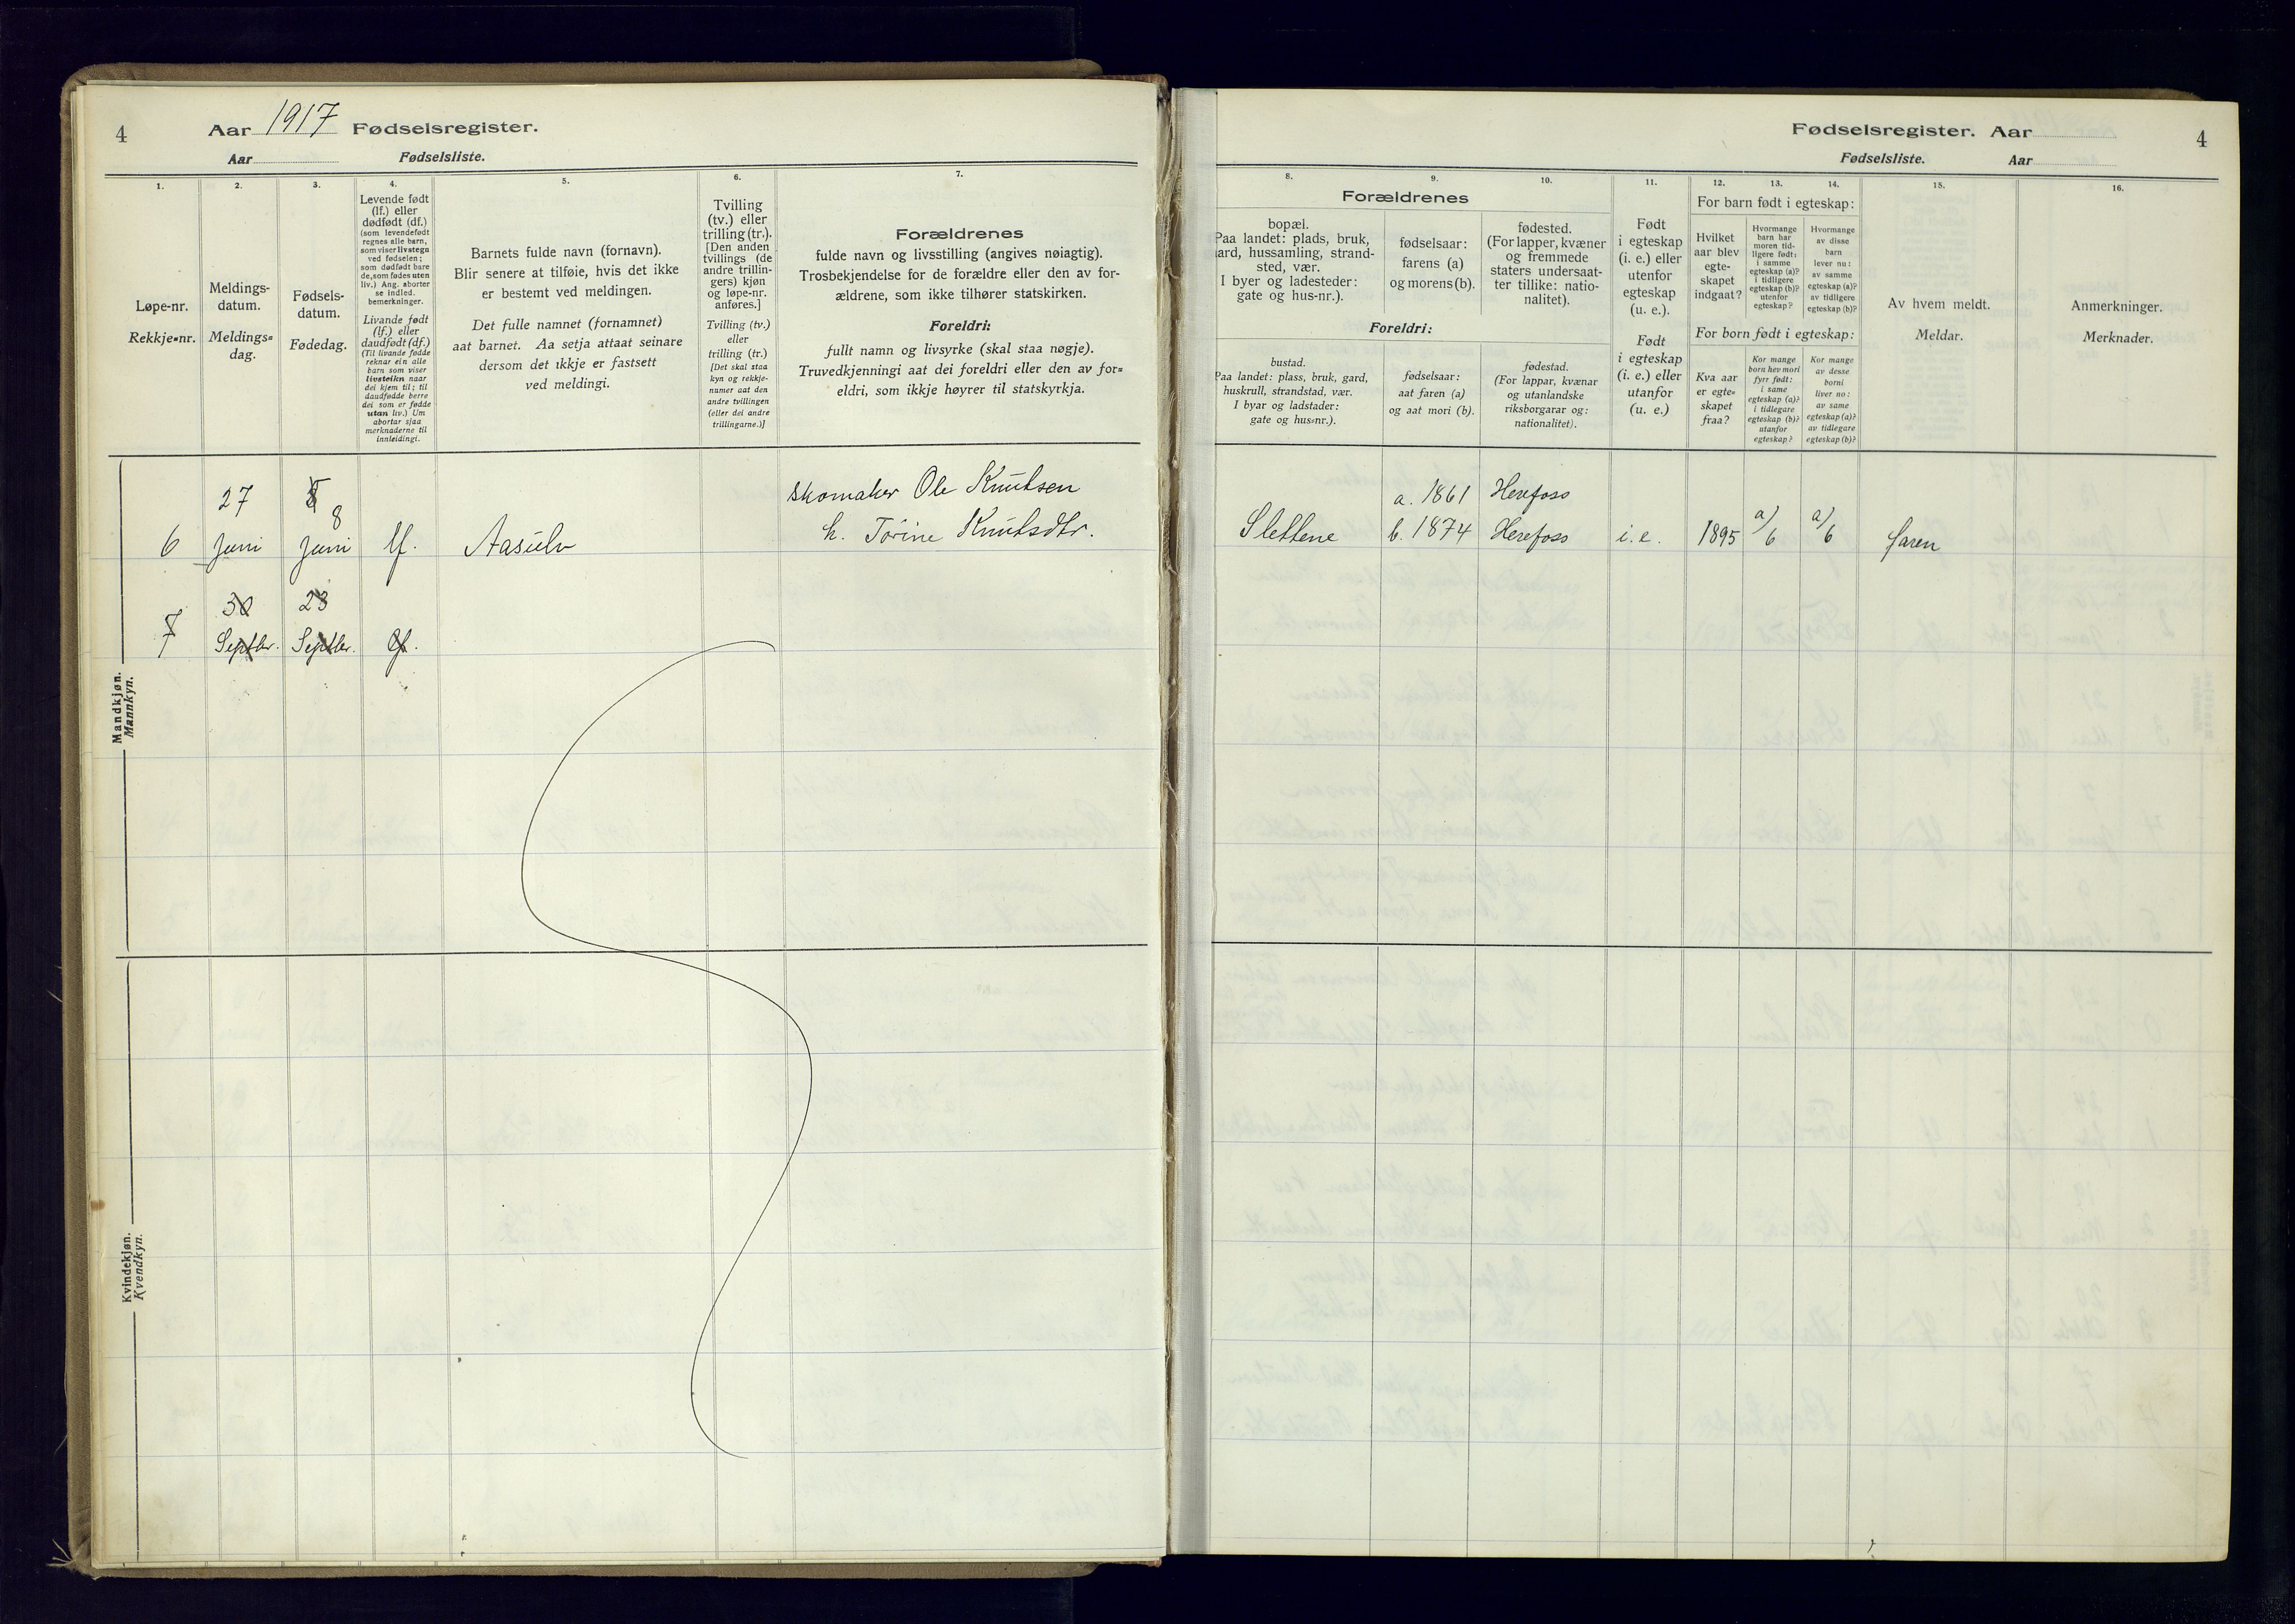 4
Aar 1917 Fødselsregister.
Aar Fødselsliste.
1.
Løpe-nr.
Rekkje=nr.
2.
Meldings-
datum.
Meldings=
dag.
3.
Fødsels-
datum.
Fødedag.
4.
Levende født
(lf.) eller
dødfødt (df.)
(som levendefødt
regnes alle barn,
som viser livstegn
ved fødselen;
som dødfødt bare
de, som fødes uten
liv.) Ang. aborter
se indled.
bemerkninger.
Livande født
(lf.) eller
daudfødt (df.)
(Til livande fødde
reknar ein alle
barn som viser
livsteikn naar
dei kjem til; til
daudfødde berre
dei som er fødde
utan liv.) Um
abortar sjaa
merknaderne til
innleidingi.
5.
Barnets fulde navn (fornavn).
Blir senere at tilføie, hvis det ikke
er bestemt ved meldingen.
Det fulle namnet (fornamnet)
aat barnet. Aa setja attaat seinare
dersom det ikkje er fastsett
ved meldingi.
6.
Tvilling
(tv.) eller
trilling (tr.).
[Den anden
tvillings (de
andre trillin-
gers) kjøn
og løpe-nr.
anføres.]
Tvilling (tv.)
eller
trilling (tr.)
[Det skal staa
kyn og rekkje-
numer aat den
andre tvillingen
(eller dei andre
trillingarne.)]
7.
Forældrenes
fulde navn og livsstilling (angives nøiagtig).
Trosbekjendelse for de forældre eller den av for-
ældrene, som ikke tilhører statskirken.
Foreldri:
fullt namn og livsyrke (skal staa nøgje).
Truvedkjenningi aat dei foreldri eller den av for=
eldri, som ikkje høyrer til statskyrkja.
Mandkjøn.
Mannkyn.
6
27
Juni
8
Juni
lf.
Aasulv
Skomaker Ole Knutsen
h. Torine Knutsdtr.
7
30
Septbr.
23
Septbr.
lf.
Kvindekjøn.
Kvendkyn.
Fødselsregister. Aar
4
Fødselsliste. Aar
8.
Forældrenes
bopæl.
Paa landet: plads, bruk,
gard, hussamling, strand-
sted, vær.
I byer og ladesteder:
gate og hus-nr.).
9.
fødselsaar:
farens (a)
og morens (b).
10.
fødested.
(For lapper, kvæner
og fremmede
staters undersaat-
ter tillike: natio-
nalitet).
Foreldri:
bustad.
Paa landet: plass, bruk, gard,
huskrull, strandstad, vær.
I byar og ladstader:
gate og hus=nr.).
fødselsaar:
aat faren (a)
og aat mori (b).
fødestad.
(For lappar, kvænar
og utanlandske
riksborgarar og:
nationalitet).
11.
Født
i egteskap
(i. e.) eller
utenfor
egteskap
(u. e.).
Født
i egteskap
(i. e.) eller
utanfor
(u. e.)
12.
13.
14.
For barn født i egteskap:
Hvilket
aar blev
egte-
skapet
indgaat?
Hvormange
barn har
moren tid-
ligere født:
i samme
egteskap (a)?
i tidligere
egteskap (b)?
utenfor
egteskap?
Hvormange
av disse
barn
lever nu:
av samme
egteskap (a)?
av tidligere
egteskap (b)?
For born født i egteskap:
Kva aar
er egte=
skapet
fraa?
Kor mange
born hev mori
fyrr født:
i same
egteskap (a)?
i tidlegare
egteskap (b)?
utanfor
egteskap?
Kor mange
av desse
borni
liver no:
av same
egteskap (a)?
av tidlegare
egteskap (b)?
15.
Av hvem meldt.
Meldar.
16.
Anmerkninger.
Merknader.
Slettene
a. 1861
b. 1874
Herefoss
Herefoss
i. e.
1895
a/6
a/6
faren